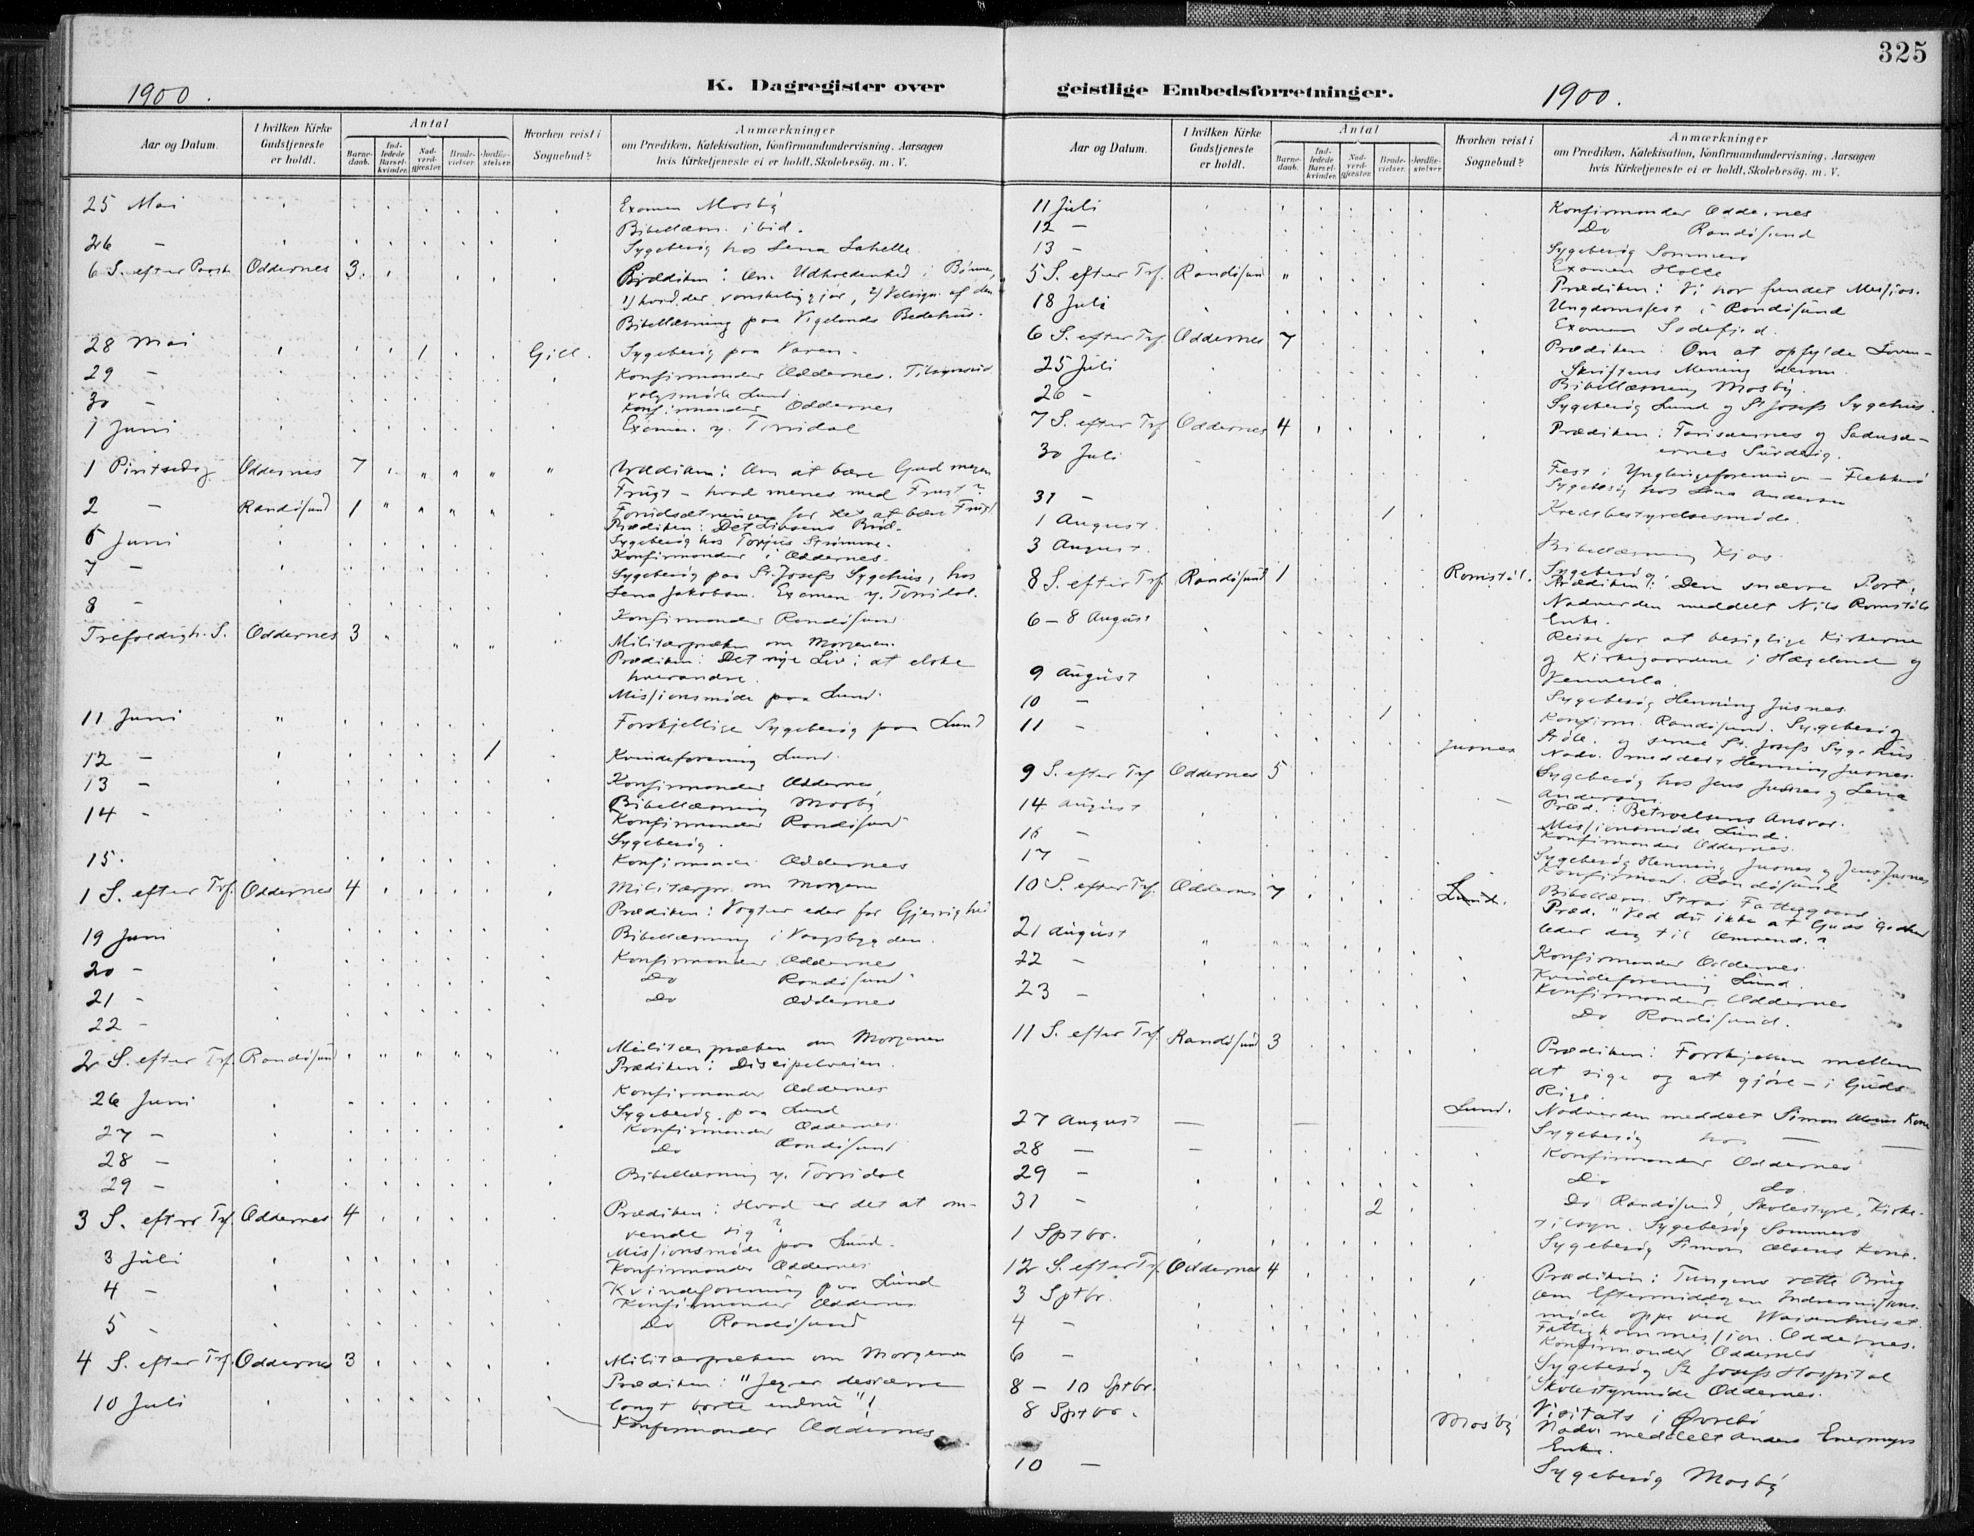 325
1900.
K. Dagregister over geistlige Embedsforretninger.
1900.
Aar og Datum.
I hvilken Kirke Gudstjeneste er holdt.
Antal
Barnedaab.
Indledede Barselkvinder.
Nadverdgjæster.
Brudevielser.
Jordfæstelser.
Hvorhen reist i Sognebud?
Anmærkninger
om Prædiken, Katekisation, Konfirmandundervisning. Aarsagen
hvis Kirketjeneste ei er holdt. Skolebesög. m. V.
25 Mai Examen Mosby
Bibellæsn. ibid.
26 - Sygebesøg hos Lena
6 S. efter Paask. Oddernes 3. Prædiken: Om Udholdenhed i Bønnen,
1) hvad der vanskeliggjør, 2) Velsign. af den
Bibellæsning paa Vigelands Bedehus.
28 Mai 1 Gill. Sygebesøg paa
29 - Konfirmander Oddernes.
valgmøde Lund.
30 - Konfirmander Oddernes
1 Juni Examen. y. Torridal
1 Pintsedag Oddernes 7 Prædiken: Om at bære Gud megen
Frugt - hvad menes med Frugt?
2 - Randøsund 1 Forudsætningen for det at bære Frugt
Prædiken: Det Livsens Brød.
6 Juni Sygebesøg hos Torjus Strømme.
Konfirmander i Oddernes.
7 - Sygebesøg paa St. Josefs Sygehus, hos
Lena Jakobsen. Examen y. Torridal.
8 - Konfirmander Randøsund
Trefoldigh. S. Oddernes 3 Militærpræken om Morgenen.
Prædiken: Det nye Liv i at elske
hverandre.
Missionsmøde paa Lund.
11 Juni Forskjellige Sygebesøg paa Lund
12 - 1 Kvindeforening Lund.
13 - Konfirmander Oddernes,
Bibellæsning Mosby
14 - Konfirmander Randøsund
Sygebesøg.
15. Konfirmander Oddernes
1 S. efter Trf. Oddernes 4 Militærpr. om Morgenen
Prædiken: Vogter eder for Gjerrighed
19 Juni Bibellæsning i Vaagsbygden.
20 - Konfirmander Oddernes
21 - Do Randøsund
22 - Do Oddernes
2 S. efter Trf. Randøsund Militærpræken om Morgenen
Prædiken: Discipelveien.
26 Juni Konfirmander Oddernes
Sygebesøg paa Lund
27 - Konfirmander Oddernes.
28 - Do Randøsund
29 - Bibellæsning y. Torridal
3 S. efter Trf. Oddernes 4 Prædiken: Hvad er det at om-
vende sig?
Missionsmøde paa Lund.
3 Juli Konfirmander Oddernes
4 - Kvindeforening paa Lund
Konfirmander Oddernes
5 - Do Randøsund
4 S. efter Trf. Oddernes 3 Militærpræken om Morgenen
Prædiken: "Jeg er desværre
langt borte endnu"!
10 Juli Konfirmander Oddernes
Aar og Datum.
I hvilken Kirke Gudstjeneste er holdt.
Antal
Barnedaab.
Indledede Barselkvinder.
Nadverdgjæster.
Brudevielser.
Jordfæstelser.
Hvorhen reist i Sognebud?
Anmærkninger
om Prædiken, Katekisation, Konfirmandundervisning. Aarsagen
hvis Kirketjeneste ei er holdt. Skolebesög. m. V.
11 Juli Konfirmander Oddernes
12 - Do Randøsund
13 - Sygebesøg Sommero
Examen Holte
5 S. efter Trf. Randøsund Prædiken: Vi har fundet Messias.
Ungdomsfest i Randøsund
18 Juli Examen
6 S. efter Trf. Oddernes 7 Prædiken: Om at opfylde Loven -
Skriftens Mening derom.
25 Juli Bibellæsning Mosby
26 - Sygebesøg Lund og St Josefs Sygehus.
7 S. efter Trf. Oddernes 4 Prædiken: Farisæernes og Sadusæ-
ernes Surdeig.
30 Juli Fest i Ynglingeforeningen - Flekkerø
Sygebesøg hos Lena Andersen
31 - Kredsbestyrelsesmøde.
1 August 1
3 August. Bibellæsning Kjos
Sygebesøg
8 S. efter Trf. Randøsund 1 Romstøl. Prædiken: Den snævre Port.
Nadverden meddelt Nils Romstøls
Enke.
6 - 8 August Reise for at besigtige Kirkerne
og Kirkegaardene i Hægeland og
Vennesla.
9 August Sygebesøg Henning Jusnes.
10 - 1 Konfirm. Randøsund. Sygebesøg
11 - Jusnes og senere St. Josefs Sygehus
Nadv. meddelt Henning Jusnes.
9 S. efter Trf Oddernes 5 Sygebesøg hos Jens Jusnes og Lena
Andersen.
14 August Præd.: Betroelsens Ansvar.
Missionsmøde Lund.
16 - Konfirmander Oddernes.
17 - Sygebesøg Henning Jusnes og Jens Jusnes
Konfirmand. Randøsund
10 S. efter Trf. Oddernes 7 Lund. Bibellæsn. Strai Fattiggaard.
Præd. "Ved du ikke at Guds Godhed
leder dig til Omvend.?
21 August Konfirmander Oddernes
22 - Kvindeforening Lund.
23 - Konfirmander Oddernes
Do Randøsund.
11 S. efter Trf. Randøsund 3 Prædiken: Forskjellen mellem
at sige og at gjøre - i Guds
Rige.
27 August Lund. Nadverden meddelt Simon Olsens Kone
28 - Sygebesøg hos
29 - Konfirmander Oddernes
Do do.
31 - 2 Do Randøsund, Skolestyre, Kirke-
tilsyn. Sygebesøg Sommero
1 Sptbr. Sygebesøg Simon Olsens Kone.
12 S. efter Trf. Oddernes 4 Prædiken: Tungens rette Brug
om Eftermiddagen Indremissions-
3 Sptbr. møde oppe ved Waisenhuset.
4 - Fattigkommission. Oddernes.
Konfirmander Oddernes
6 - Sygebesøg St Josefs Hospital
8 - 10 Sptbr. Skolestyremøde Oddernes.
8 Sptbr. Mosby Visitats i Øvrebø
Nadv. meddelt Anders
Enke.
10 - Sygebesøg Mosby